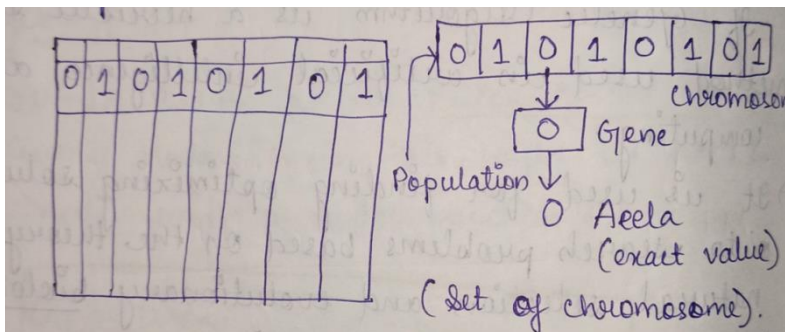 0 1 0 1 0 1 0 1
0 1 0 1 0 1 0 1
Chromosom
0 Gene
Population
0 Aeela
(exact value)
(Set of chromosome).